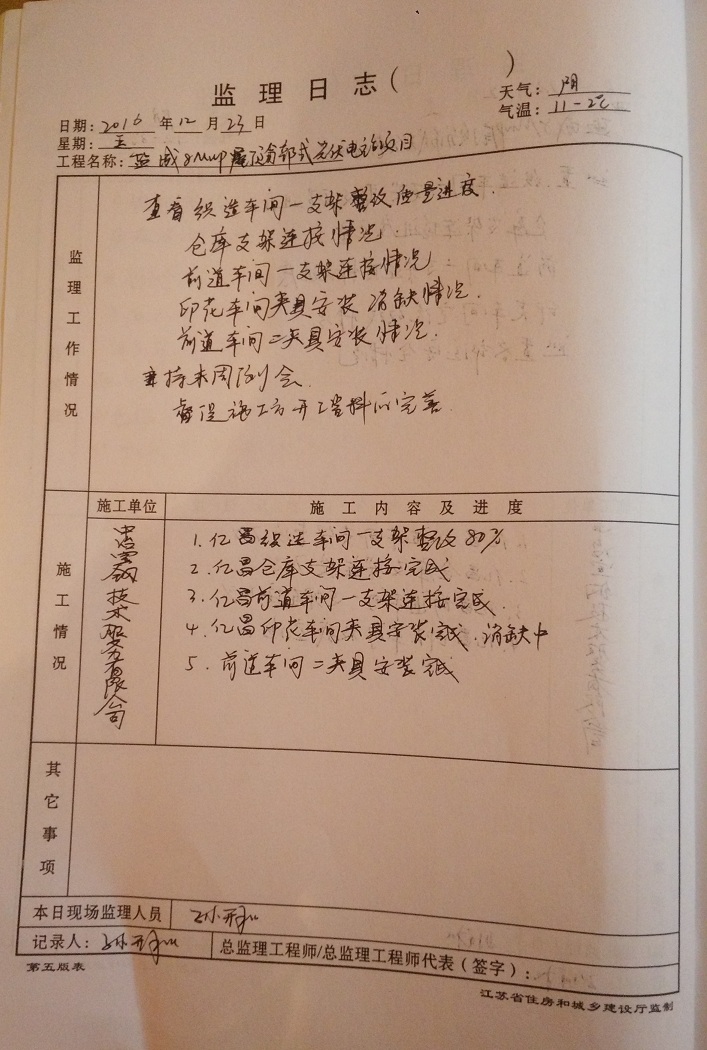 监理日志( )
天气: 阴
气温: 11-2℃
日期: 2016 年 12 月 23 日
星期: 五
工程名称: 盛 8MWp 屋顶分布式光伏电站项目
监理工作情况
查看织造车间一支架整改质量进度.
仓库支架连接情况
前道车间一支架连接情况
印花车间夹具安装 消缺情况.
前道车间二夹具安装情况.
主持末周例会.
督促施工方开工资料的完善.
施工情况
施工单位
施工内容及进度
技术服务有限公司
1. 亿昌织造车间一支架整改80%
2. 亿昌仓库支架连接完成
3. 亿昌前道车间一支架连接完成.
4. 亿昌印花车间夹具安装完成. 消缺中
5. 前道车间二夹具安装完成
其它事项
本日现场监理人员
记录人:
总监理工程师/总监理工程师代表(签字):
第五版表
江苏省住房和城乡建设厅监制